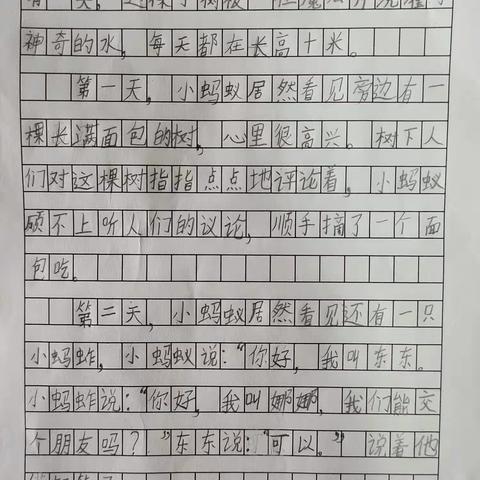 有一天，这棵小树被一位魔法师浇灌了
神奇的水，每天都在长高十米。
第一天，小蚂蚁居然看见旁边有一
棵长满面包的树，心里很高兴。树下人
们对这棵树指指点点地评论着，小蚂蚁
顾不上听人们的议论，顺手摘了一个面
包吃。
第二天，小蚂蚁居然看见还有一只
小蚂蚱，小蚂蚁说：“你好，我叫东东。
小蚂蚱说：“你好，我叫娜娜，我们能交
个朋友吗？”东东说：“可以。”说着他